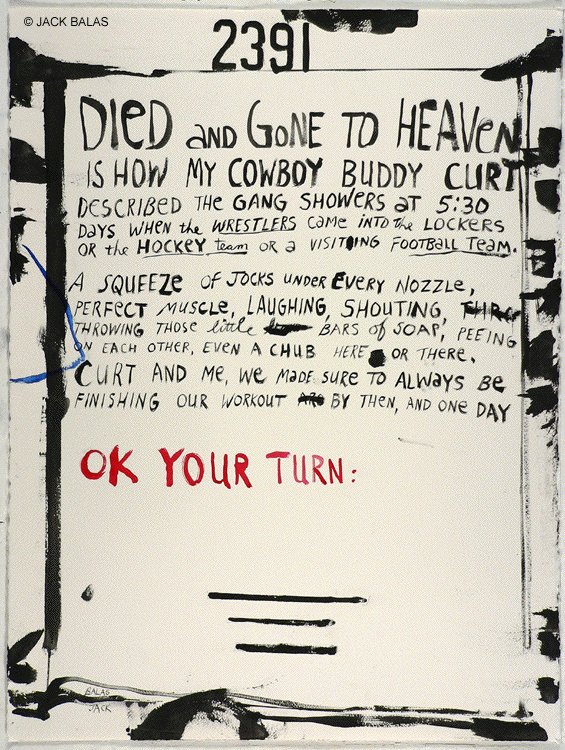 © JACK BALAS
2391
DIED AND GONE TO HEAVEN
IS HOW MY COWBOY BUDDY CURT
DESCRIBED THE GANG SHOWERS AT 5:30
DAYS WHEN the WRESTLERS CAME INTO the LOCKERS
OR the HOCKEY team OR A VISITING FOOTBALL TEAM.
A SQUEEZE OF JOCKS UNDER EVERY NOZZLE,
PERFECT MUSCLE, LAUGHING, SHOUTING,
THROWING THOSE little BARS of SOAP, PEEING
ON EACH OTHER, EVEN A CHUB HERE OR THERE.
CURT AND ME, WE MADE SURE TO ALWAYS BE
FINISHING OUR WORKOUT BY THEN, AND ONE DAY
OK YOUR TURN:
BALAS
JACK